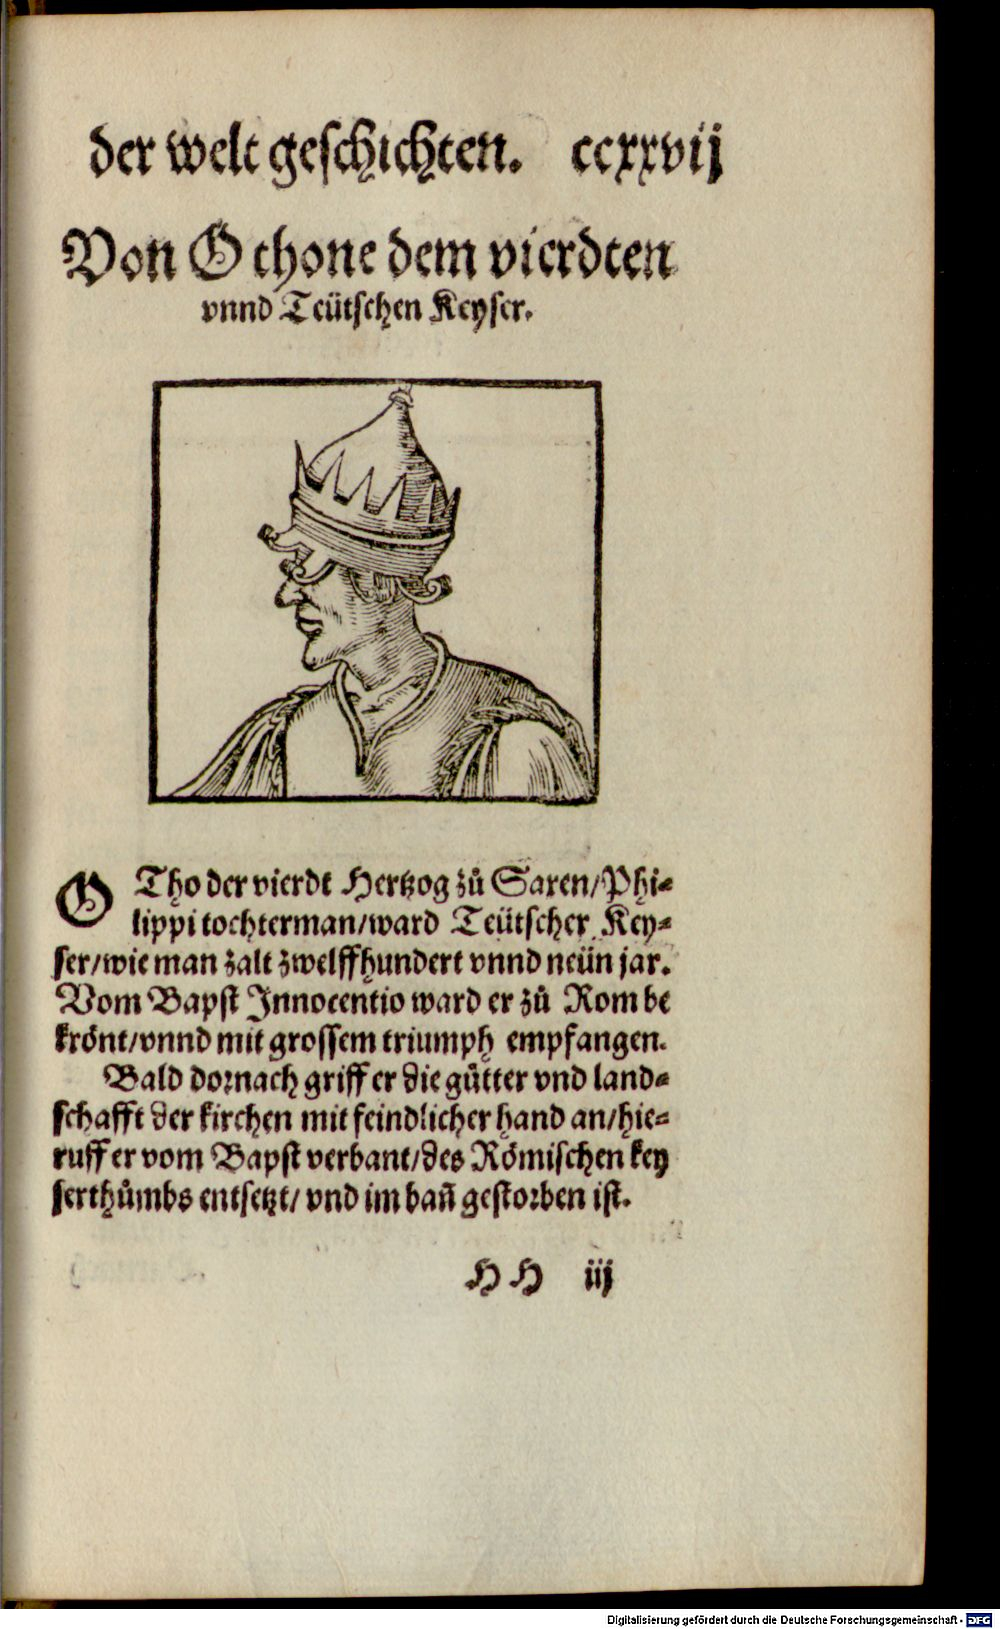 der welt geschichten. ccxxvij
Von Othone dem vierdten
vnnd Teütschen Keyser.
OTho der vierdt Hertzog zů Saxen/Phi-
lippi tochterman/ward Teütscher Key-
ser/wie man zalt zwelffhundert vnnd neün jar.
Vom Bapst Innocentio ward er zů Rom be
krönt/vnnd mit grossem triumph empfangen.
Bald dornach griff er die gütter vnd land-
schafft der kirchen mit feindlicher hand an/hie-
ruff er vom Bapst verbant/des Römischen key
serthůmbs entsetzt/vnd im bañ gestorben ist.
HH iij
Digitalisierung gefördert durch die Deutsche Forschungsgemeinschaft - DFG